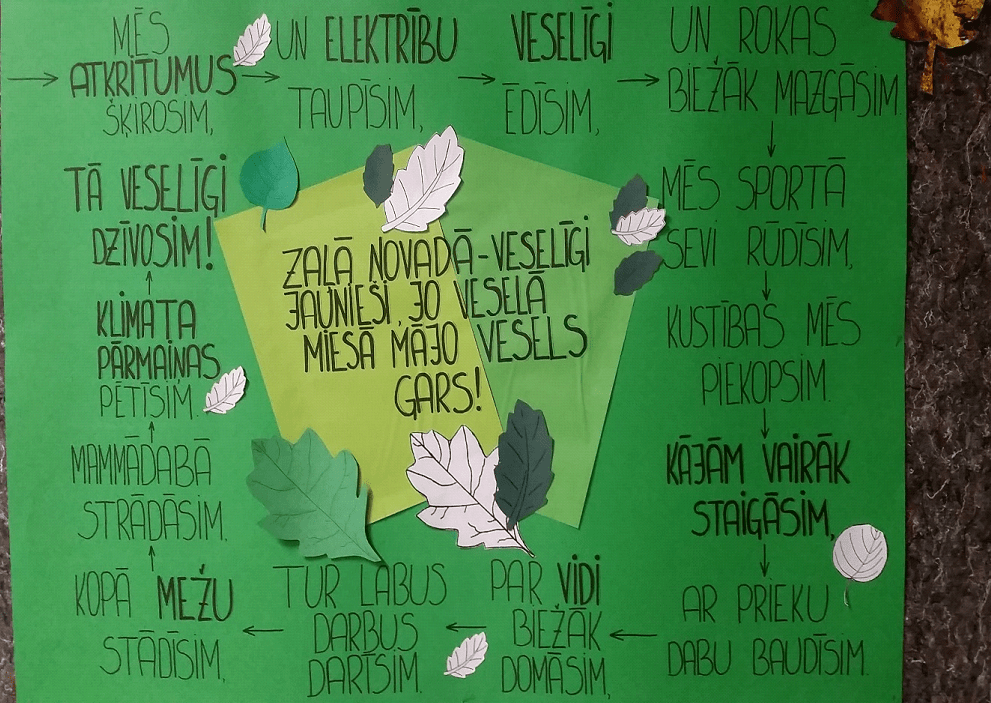 MĒS
ATKRITUMUS
ŠĶIROSIM,
UN ELEKTRĪBU
TAUPĪSIM,
VESELĪGI
ĒDĪSIM,
UN ROKAS
BIEŽĀK MAZGĀSIM.
MĒS SPORTĀ
SEVI RŪDĪSIM,
KUSTĪBAS MĒS
PIEKOPSIM.
KĀJĀM VAIRĀK
STAIGĀSIM,
AR PRIEKU
DABU BAUDĪSIM.
PAR VIDI
BIEŽĀK
DOMĀSIM,
TUR LABUS
DARBUS
DARĪSIM.
KOPĀ MEŽU
STĀDĪSIM,
MAMMĀDABĀ
STRĀDĀSIM.
KLIMATA
PĀRMAIŅAS
PĒTĪSIM.
TĀ VESELĪGI
DZĪVOSIM!
ZAĻĀ NOVADĀ-VESELĪGI
JAUNIEŠI, JO VESELĀ
MIESĀ MĀJO VESELS
GARS!